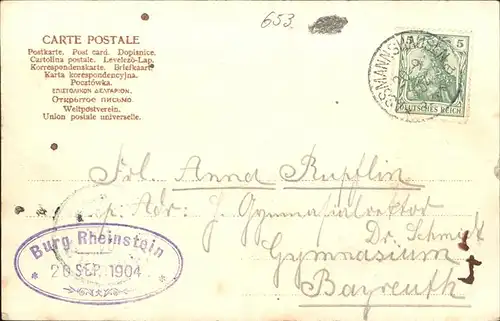 653.
CARTE POSTALE
Postkarte. Post card. Dopisnice.
Cartolina postale. Levelező-Lap.
Korrespondenskarte. Briefkaart.
Karta korespondencyjna.
Pocztówka.
ΕΠΙΣΤΟΛΙΚΟΝ ΔΕΛΤΑΡΙΟΝ.
Открытое письмо.
Weltpostverein.
Union postale universelle.
5
DEUTSCHES REICH
Frl. Anna
Adr: Gymnasialrektor
Dr. Schmidt
Gymnasium
Bayreuth
Burg Rheinstein
20 SEP. 1904